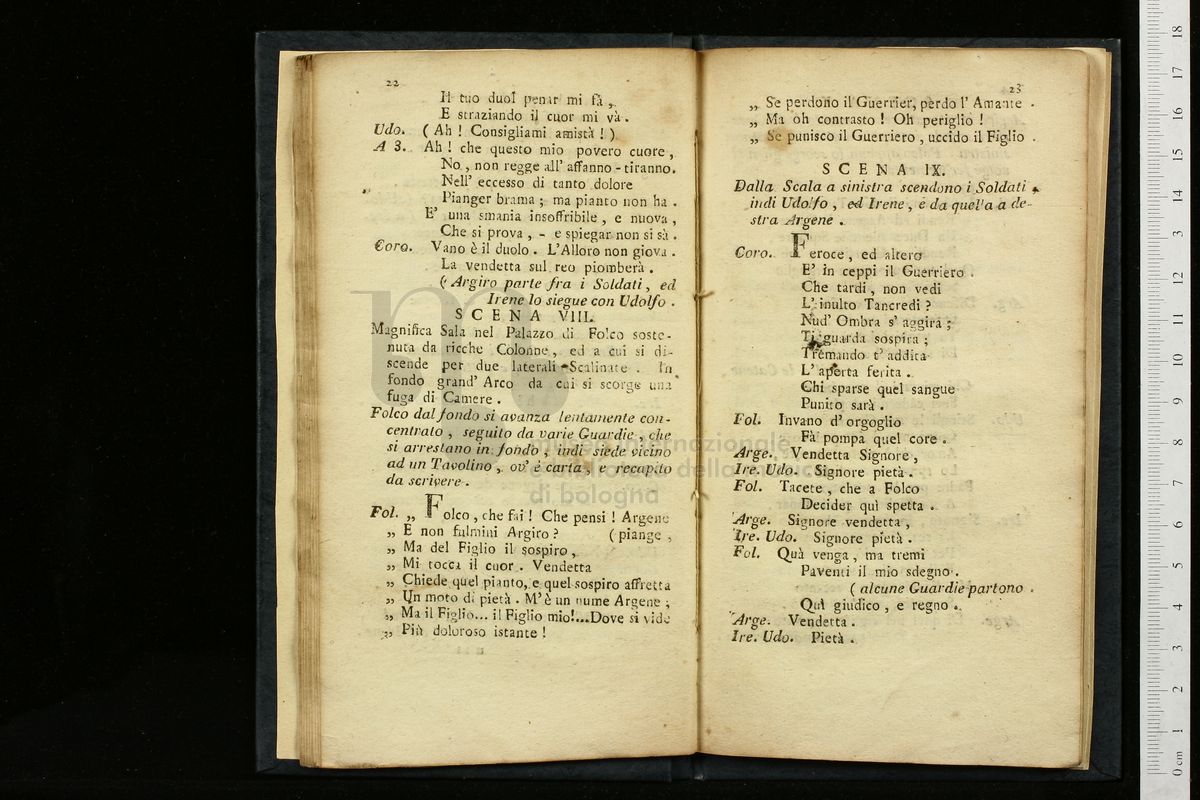 22
Il tuo duol penar mi fà,
E straziando il cuor mi và.
Udo. ( Ah ! Consigliami amistà ! )
A 3. Ah ! che questo mio povero cuore,
No, non regge all' affanno - tiranno.
Nell' eccesso di tanto dolore
Pianger brama ; ma pianto non ha .
E' una smania insoffribile, e nuova,
Che si prova, - e spiegar non si sà .
Coro. Vano è il duolo . L'Alloro non giova .
La vendetta sul reo piomberà .
( Argiro parte fra i Soldati, ed
Irene lo siegue con Udolfo .
SCENA VIII.
Magnifica Sala nel Palazzo di Folco soste-
nuta da ricche Colonne, ed a cui si di-
scende per due laterali Scalinate . In
fondo grand' Arco da cui si scorge una
fuga di Camere .
Folco dal fondo si avanza lentamente con-
centrato, seguito da varie Guardie, che
si arrestano in fondo ; indi siede vicino
ad un Tavolino, ov' è carta, e recapito
da scrivere .
Fol. „ Folco, che fai ! Che pensi ! Argene
„ E non fulmini Argiro ? ( piange,
„ Ma del Figlio il sospiro,
„ Mi tocca il cuor . Vendetta
„ Chiede quel pianto, e quel sospiro affretta
„ Un moto di pietà . M'è un nume Argene ;
„ Ma il Figlio... il Figlio mio!...Dove si vide
„ Più doloroso istante !
23
„ Se perdono il Guerrier, perdo l' Amante .
„ Ma oh contrasto ! Oh periglio !
„ Se punisco il Guerriero, uccido il Figlio .
SCENA IX.
Dalla Scala a sinistra scendono i Soldati,
indi Udolfo, ed Irene, e da quella a de-
stra Argene .
Coro. Feroce, ed altero
E' in ceppi il Guerriero .
Che tardi, non vedi
L' inulto Tancredi ?
Nud' Ombra s' aggira ;
Ti guarda sospira ;
Tremando t' addita
L' aperta ferita .
Chi sparse quel sangue
Punito sarà .
Fol. Invano d' orgoglio
Fà pompa quel core .
Arge. Vendetta Signore,
Ire. Udo. Signore pietà .
Fol. Tacete, che a Folco
Decider quì spetta .
Arge. Signore vendetta,
Ire. Udo. Signore pietà .
Fol. Quà venga, ma tremi
Paventi il mio sdegno .
( alcune Guardie partono .
Quì giudico, e regno .
Arge. Vendetta .
Ire. Udo. Pietà .
museo internazionale
e biblioteca della musica
di bologna
0 cm 1 2 3 4 5 6 7 8 9 10 11 12 13 14 15 16 17 18